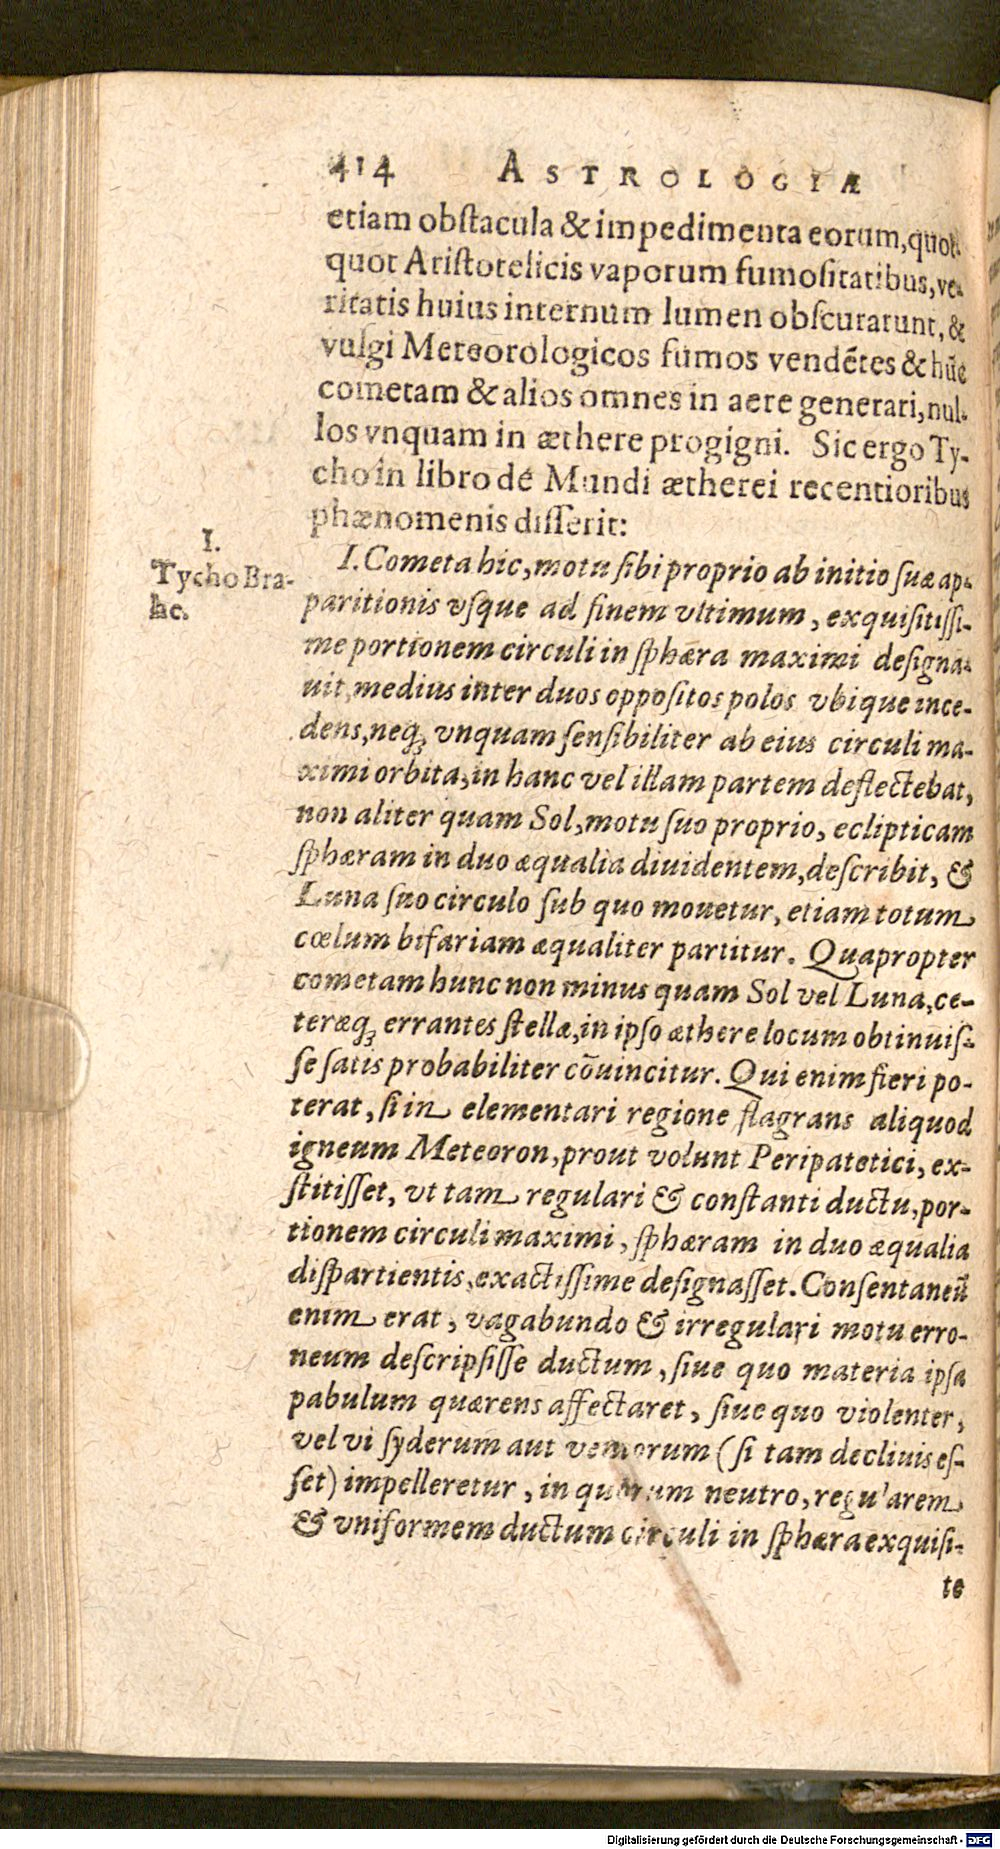 414 ASTROLOGIÆ
etiam obſtacula & impedimenta eorum, quot-
quot Ariſtotelicis vaporum fumoſitatibus, ve-
ritatis huius internum lumen obſcurarunt, &
vulgi Meteorologicos fumos vendẽtes & hũc
cometam & alios omnes in aere generari, nul-
los vnquam in æthere progigni. Sic ergo Ty-
cho in libro de Mundi ætherei recentioribus
phænomenis diſſerit:
I.
Tycho Bra-
he.
I. Cometa hic, motu ſibi proprio ab initio ſuæ ap-
paritionis vſque ad finem vltimum, exquiſitiſſi-
me portionem circuli in ſphæra maximi deſigna-
uit, medius inter duos oppoſitos polos vbique ince-
dens, neqꝫ vnquam ſenſibiliter ab eius circuli ma-
ximi orbita, in hanc vel illam partem deflectebat,
non aliter quam Sol, motu ſuo proprio, eclipticam
ſphæram in duo æqualia diuidentem, deſcribit, &
Luna ſuo circulo ſub quo mouetur, etiam totum
cœlum bifariam æqualiter partitur. Quapropter
cometam hunc non minus quam Sol vel Luna, ce-
teræqꝫ errantes ſtellæ, in ipſo æthere locum obtinuiſ-
ſe ſatis probabiliter cõuincitur. Qui enim fieri po-
terat, ſi in elementari regione flagrans aliquod
igneum Meteoron, prout volunt Peripatetici, ex-
ſtitiſſet, vt tam regulari & conſtanti ductu, por-
tionem circuli maximi, ſphæram in duo æqualia
diſpartientis, exactiſſime deſignaſſet. Conſentaneũ
enim erat, vagabundo & irregulari motu erro-
neum deſcripſiſſe ductum, ſiue quo materia ipſa
pabulum quærens affectaret, ſiue quo violenter,
vel vi ſyderum aut ventorum (ſi tam decliuis eſ-
ſet) impelleretur, in quorum neutro, regularem
& vniformem ductum circuli in ſphæra exquiſi-
te
Digitalisierung gefördert durch die Deutsche Forschungsgemeinschaft - DFG